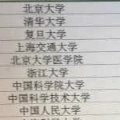 北京大学
清华大学
复旦大学
上海交通大学
北京大学医学院
浙江大学
中国科学院大学
中国科学技术大学
中国人民大学